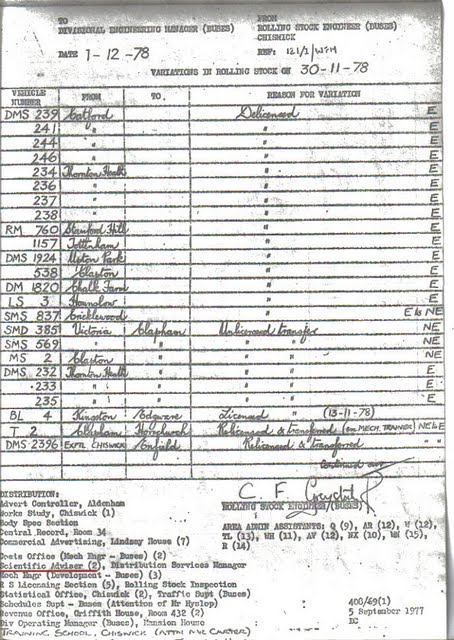 TO FROM
DIVISIONAL ENGINEERING MANAGER (BUSES) ROLLING STOCK ENGINEER (BUSES)
CHISWICK
DATE 1-12-78 REF: 121/1/WFH
VARIATIONS IN ROLLING STOCK ON 30-11-78
VEHICLE NUMBER FROM TO. REASON FOR VARIATION
DMS 239 Catford Delicensed E
241 " " E
244 " " E
246 " " E
234 Thornton Heath " E
236 " " E
237 " " E
238 " " E
RM 760 Stamford Hill " E
1157 Tottenham " E
DMS 1924 Upton Park " E
538 Clapton " E
DM 1820 Chalk Farm " E
LS 3 Hounslow " E
SMS 837 Cricklewood " E to NE
SMD 385 Victoria Clapham Unlicensed transfer NE
SMS 569 " " " " NE
MS 2 Clapton " " " NE
DMS 232 Thornton Heath " " " E
233 " " " " E
235 " " " " E
BL 4 Kingston Edgware Licensed " (13-11-78)
T 2 Clapham Hornchurch Relicensed & transferred (on MECH. TRAINER) NE to E
DMS 2396 EXPTL CHISWICK Enfield Relicensed & transferred " "
Continued over
DISTRIBUTION:
Advert Controller, Aldenham
Works Study, Chiswick (1)
Body Spec Section
Central Record, Room 34
Commercial Advertising, Lindsey House (7)
ROLLING STOCK ENGINEER (BUSES)
AREA ADMIN ASSISTENTS: Q (9), AR (12), (12),
TL (13), WH (11), AV (12), HX (10), (15),
R (14)
Costs Office (Mech Engr - Buses) (2)
Scientific Adviser (2), Distribution Services Manager
Mech Engr (Development - Buses) (3)
R S Licensing Section (5), Rolling Stock Inspection
Statistical Office, Chiswick (2), Traffic Supt (Buses)
Schedules Supt - Buses (Attention of Mr Hyslop)
Revenue Office, Griffith House, Room 432 (2)
Div Operating Manager (Buses), Mansion House
TRAINING SCHOOL, CHISWICK (ATTN MR CARTER)
400/49(1)
5 September 1977
EC